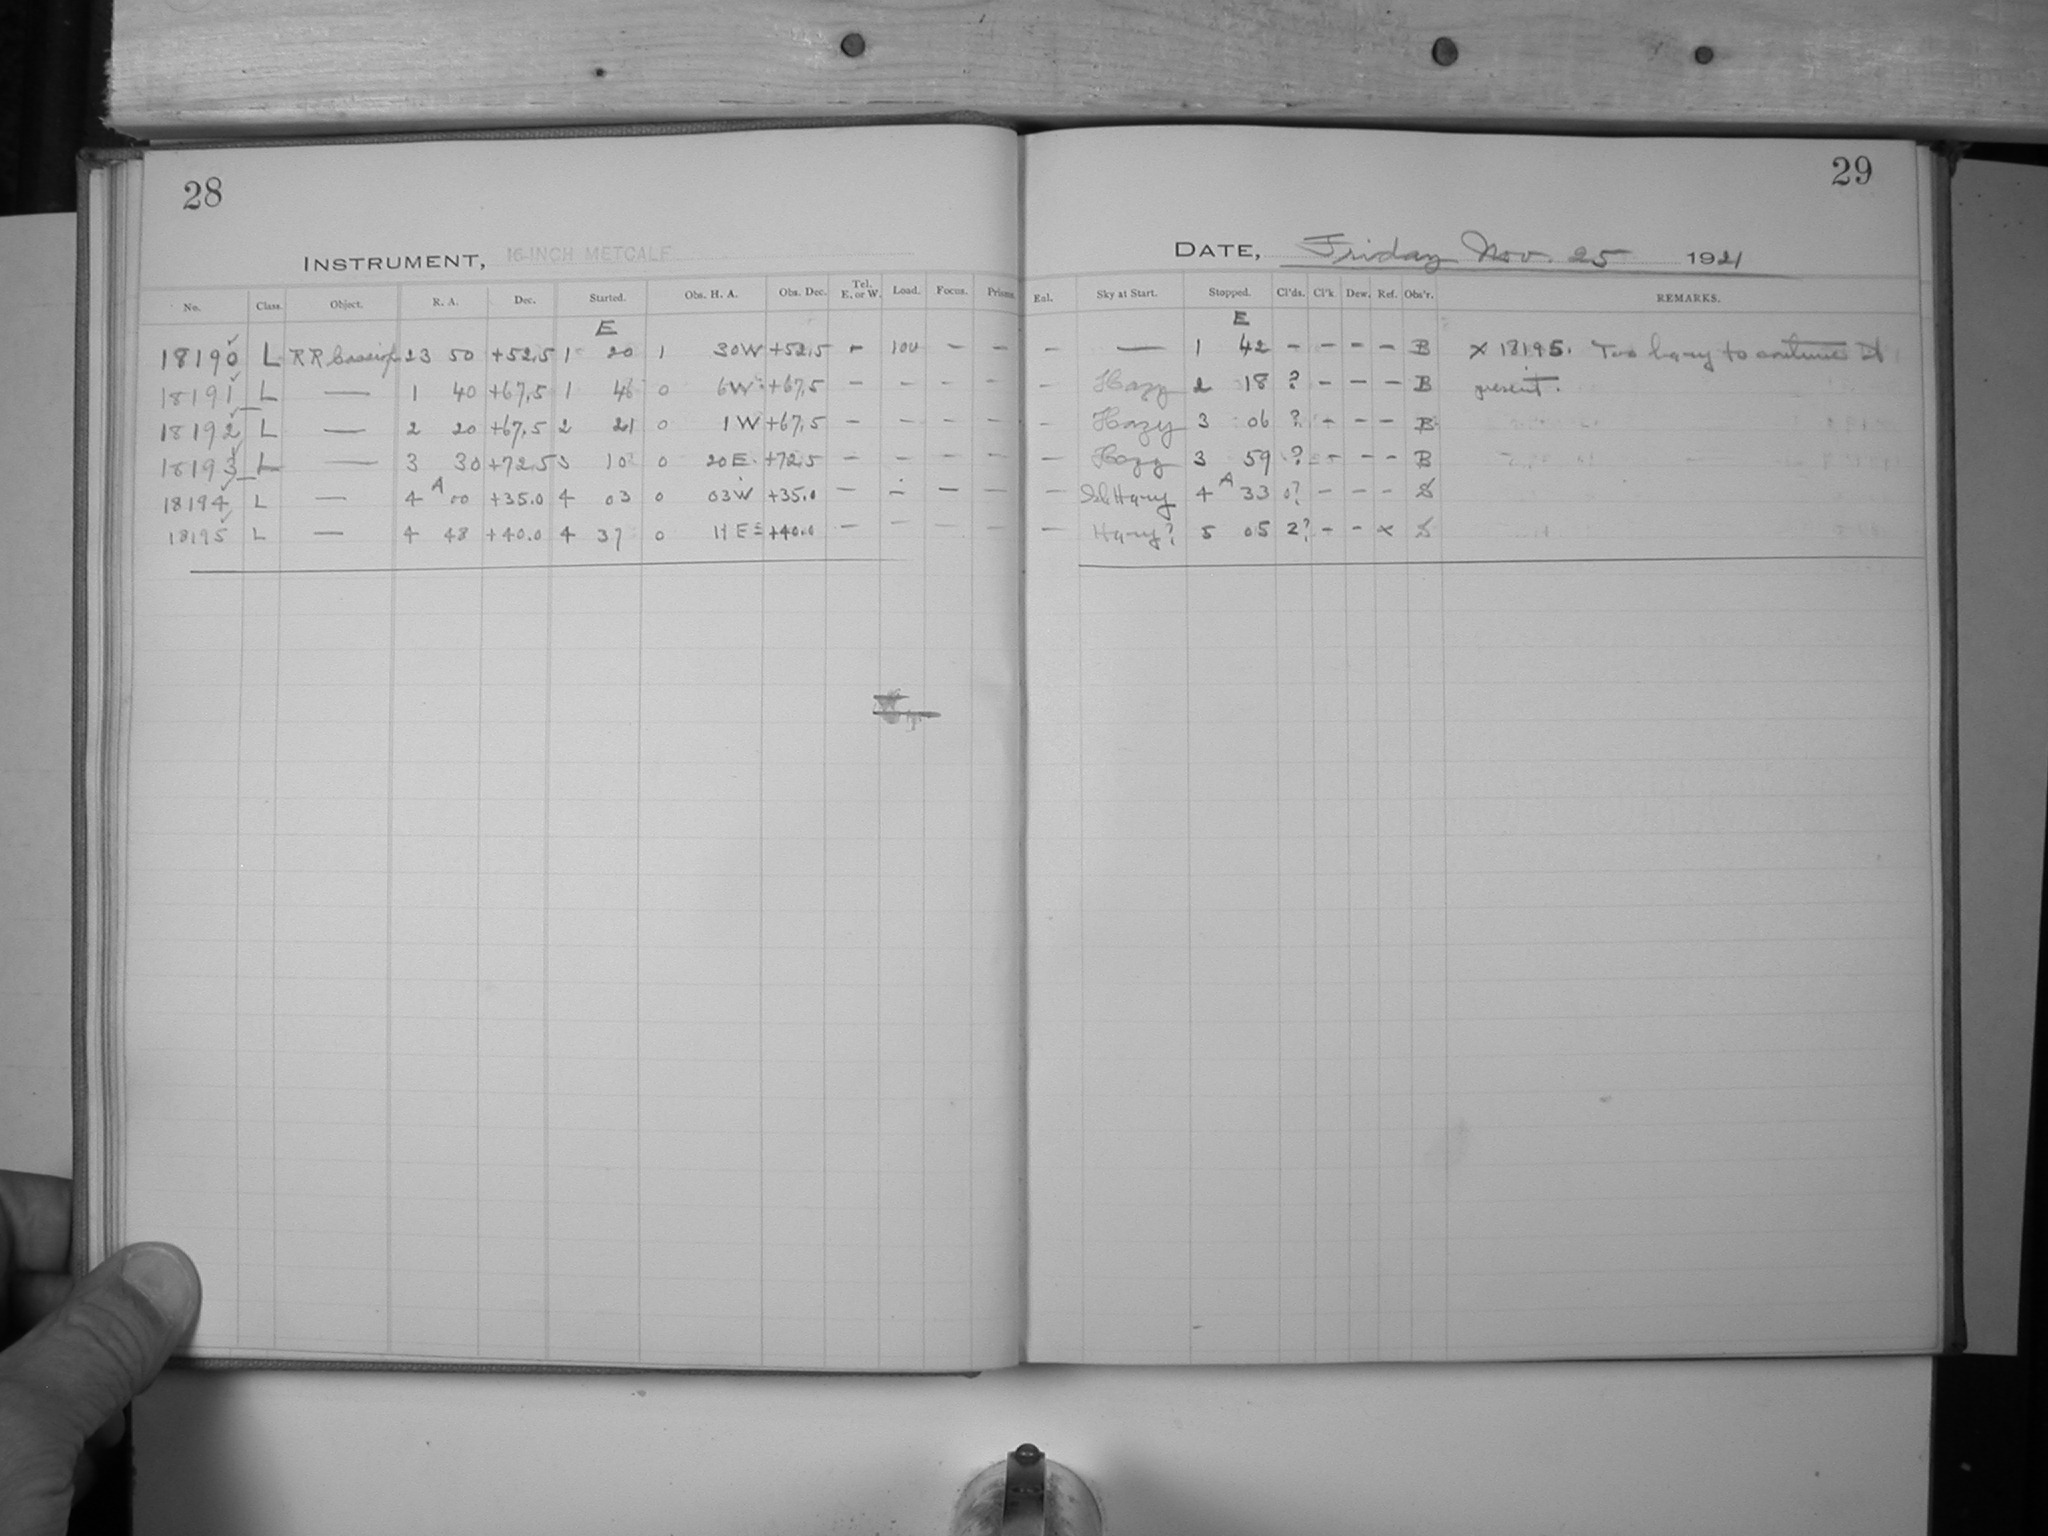 28
29
INSTRUMENT, 16-INCH METCALF
DATE, Friday Nov. 25 1921
No. Class. Object. R. A. Dec. Started. Obs. H. A. Obs. Dec. Tel. E. or W. Load. Focus. Prisms. Enl. Sky at Start. Stopped. Cl'ds. Cl'k Dew. Ref. Obs'r. REMARKS.
E E
18190 L RR Cassiop 23 50 +52.5 1 20 1 30W +52.5 - 100 - - - — 1 42 - - - - B x 18195. Too hazy to continue at
18191 L — 1 40 +67.5 1 46 0 6W +67.5 - - - - - Hazy 2 18 ? - - - B present.
18192 L — 2 20 +67.5 2 21 0 1W +67.5 - - - - - Hazy 3 06 ? - - - B
18193 L — 3 30 +72.5 3 10 0 20E +72.5 - - - - - Hazy 3 59 ? - - - B
A A
18194 L — 4 00 +35.0 4 03 0 03W +35.0 - - - - - Hazy 4 33 0? - - - S
18195 L — 4 48 +40.0 4 37 0 11E +40.0 - - - - - Hazy? 5 05 2? - - x S